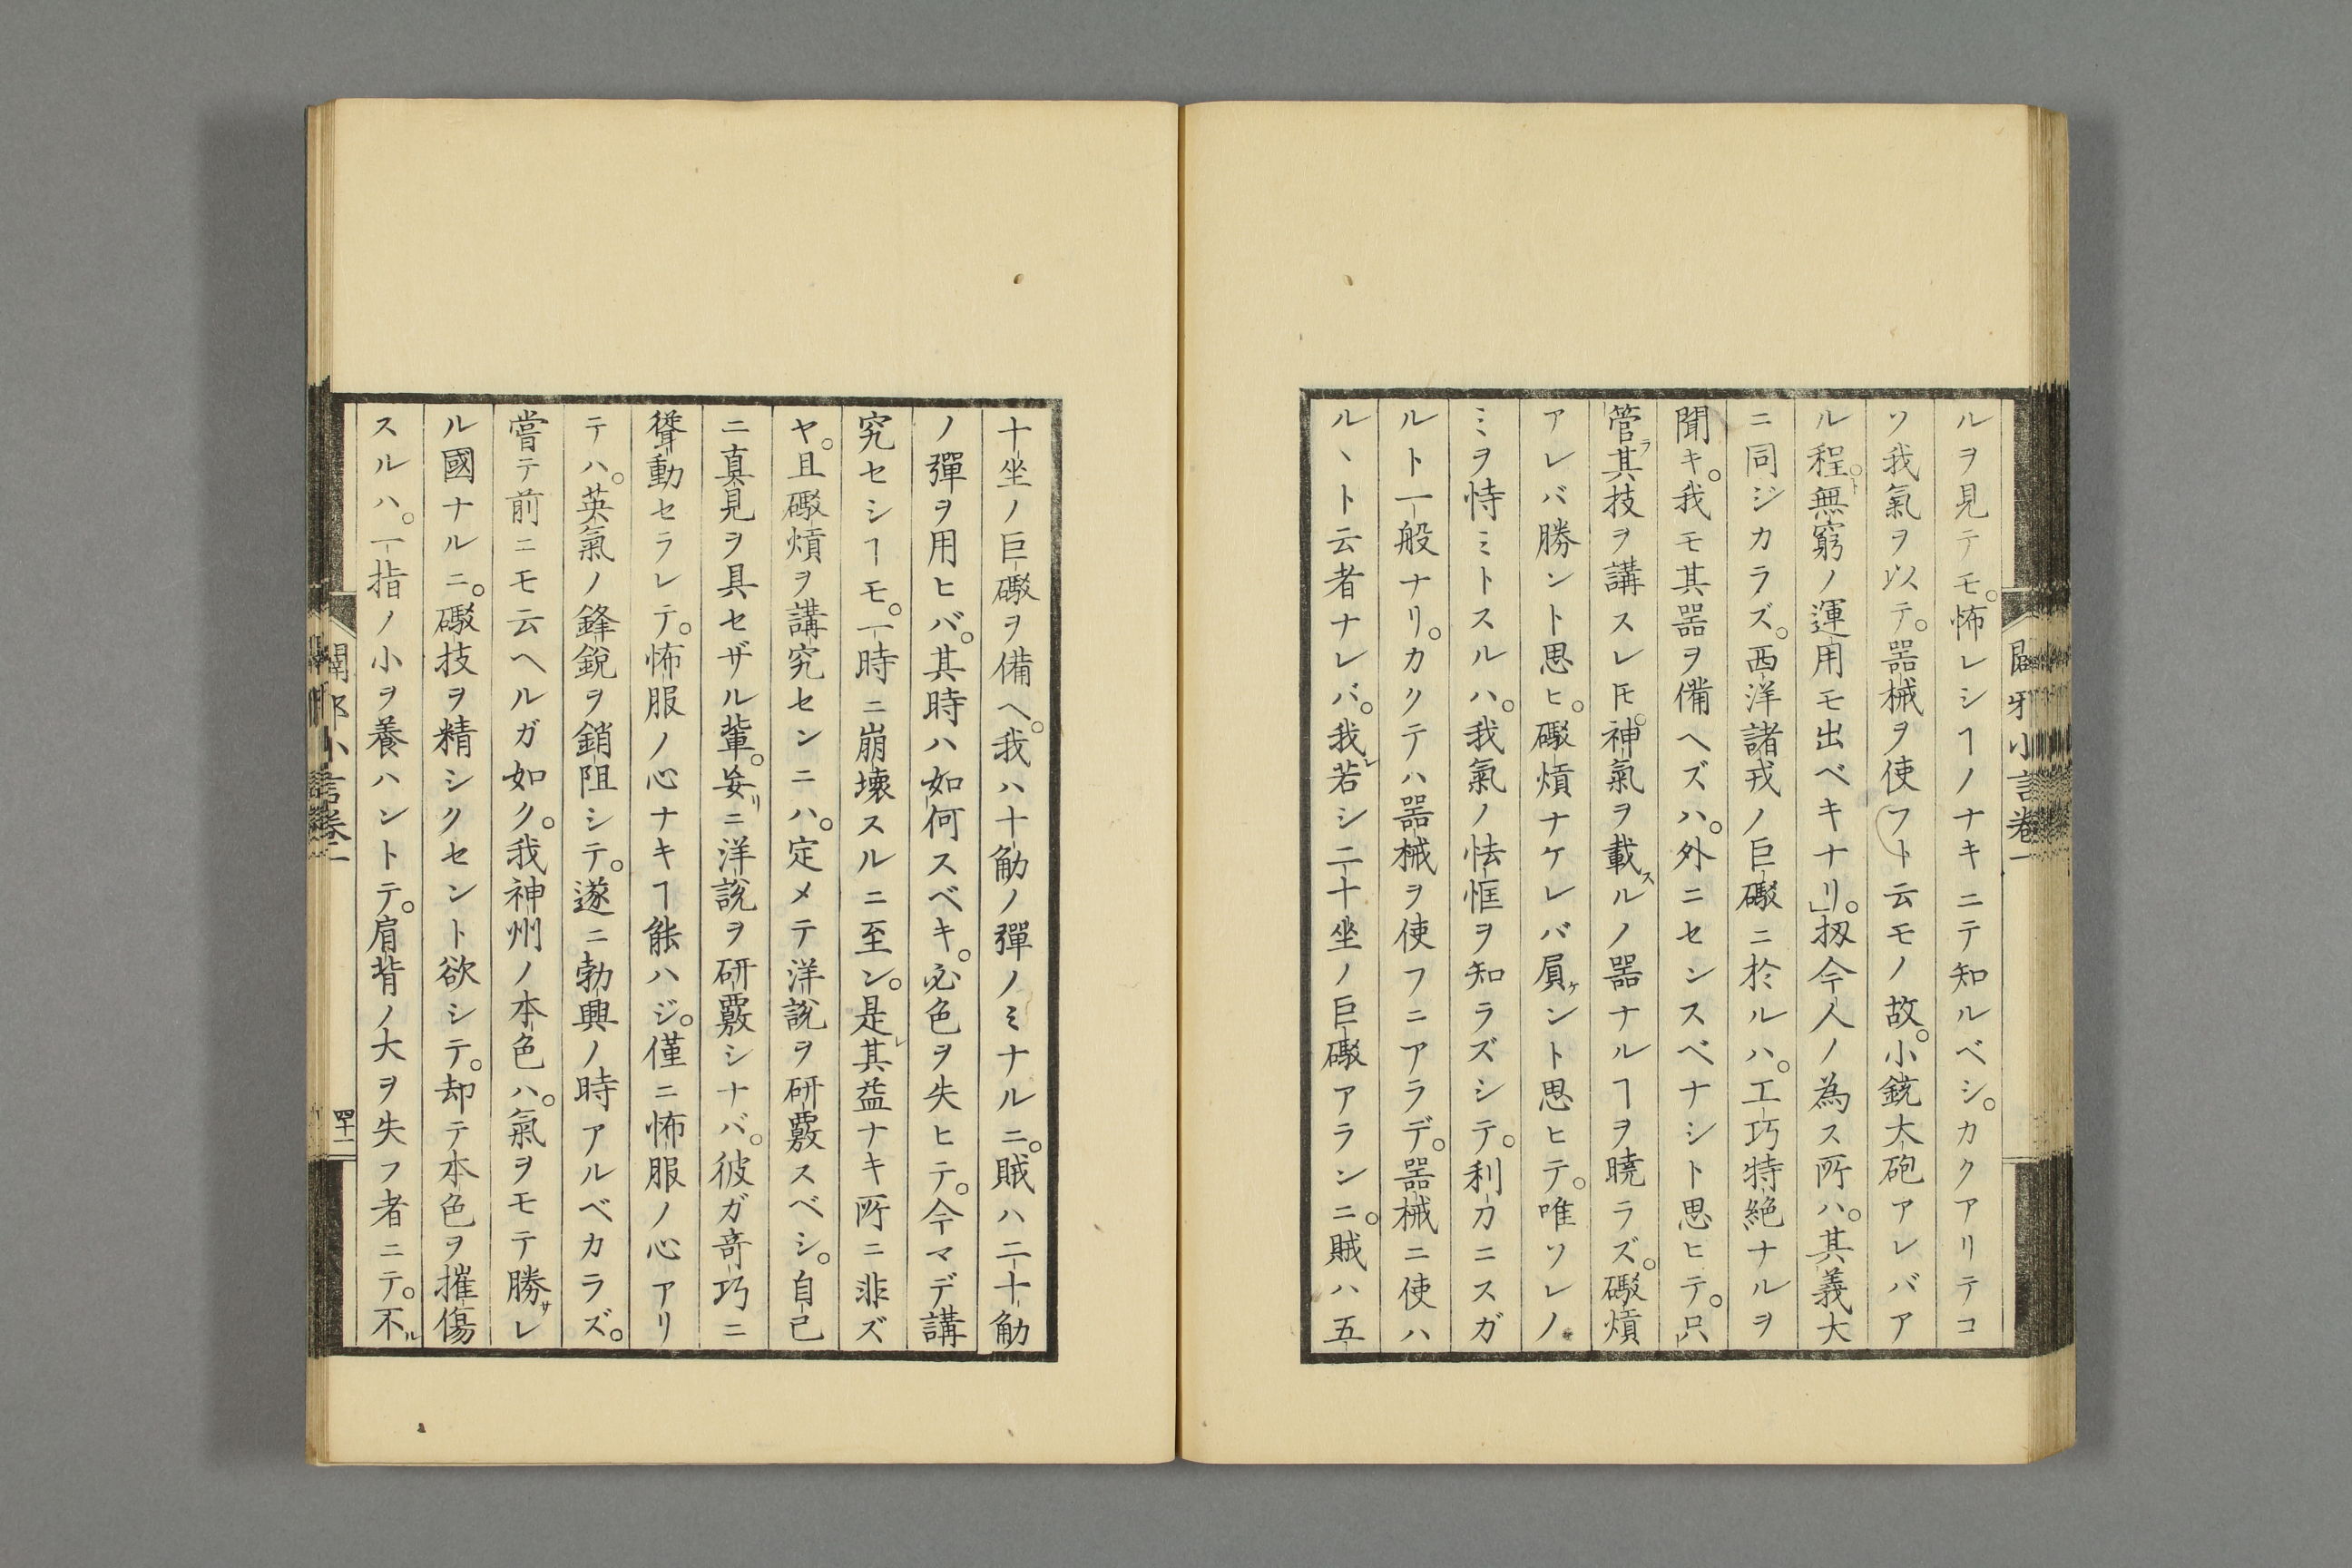 ルヲ見テモ。怖レシヿノナキニテ知ルベシ。カクアリテコ
ソ我氣ヲ以テ。器械ヲ使フト云モノ故。小銃大砲アレバア
ル程。無窮ノ運用モ出ベキナリ。」扨今人ノ為ス所ハ。其義大
ニ同ジカラズ。西洋諸戎ノ巨礟ニ於ルハ。工巧特絶ナルヲ
聞キ。我モ其器ヲ備ヘズハ。外ニセンスベナシト思ヒテ。只
管ラ其技ヲ講スレ𪜈。神氣ヲ載スルノ器ナルヿヲ曉ラズ。礟熕
アレバ勝ント思ヒ。礟熕ナケレバ屓ケント思ヒテ。唯ソレノ
ミヲ恃ミトスルハ。我氣ノ怯恇ヲ知ラズシテ。利刀ニスガ
ルト一般ナリ。カクテハ器械ヲ使フニアラデ。器械ニ使ハ
ルヽト云者ナレバ。我レ若シ二十坐ノ巨礟アランニ。賊ハ五
十坐ノ巨礟ヲ備ヘ。我ハ十觔ノ彈ノミナルニ。賊ハ二十觔
ノ彈ヲ用ヒバ。其時ハ如何スベキ。必色ヲ失ヒテ。今マデ講
究セシヿモ。一時ニ崩壞スルニ至ン。是レ其益ナキ所ニ非ズ
ヤ。且礟熕ヲ講究センニハ。定メテ洋説ヲ研覈スベシ。自己
ニ真見ヲ具セザル輩。妄リニ洋説ヲ研覈シナバ。彼ガ奇巧ニ
聳動セラレテ。怖服ノ心ナキヿ能ハジ。僅ニ怖服ノ心アリ
テハ。英氣ノ鋒銳ヲ銷阻シテ。遂ニ勃興ノ時アルベカラズ。
嘗テ前ニモ云ヘルガ如ク。我神州ノ本色ハ。氣ヲモテ勝サレ
ル國ナルニ。礟技ヲ精シクセント欲シテ。却テ本色ヲ摧傷
スルハ。一指ノ小ヲ養ハントテ。肩背ノ大ヲ失フ者ニテ。不ル
闢邪小言卷二
四十二